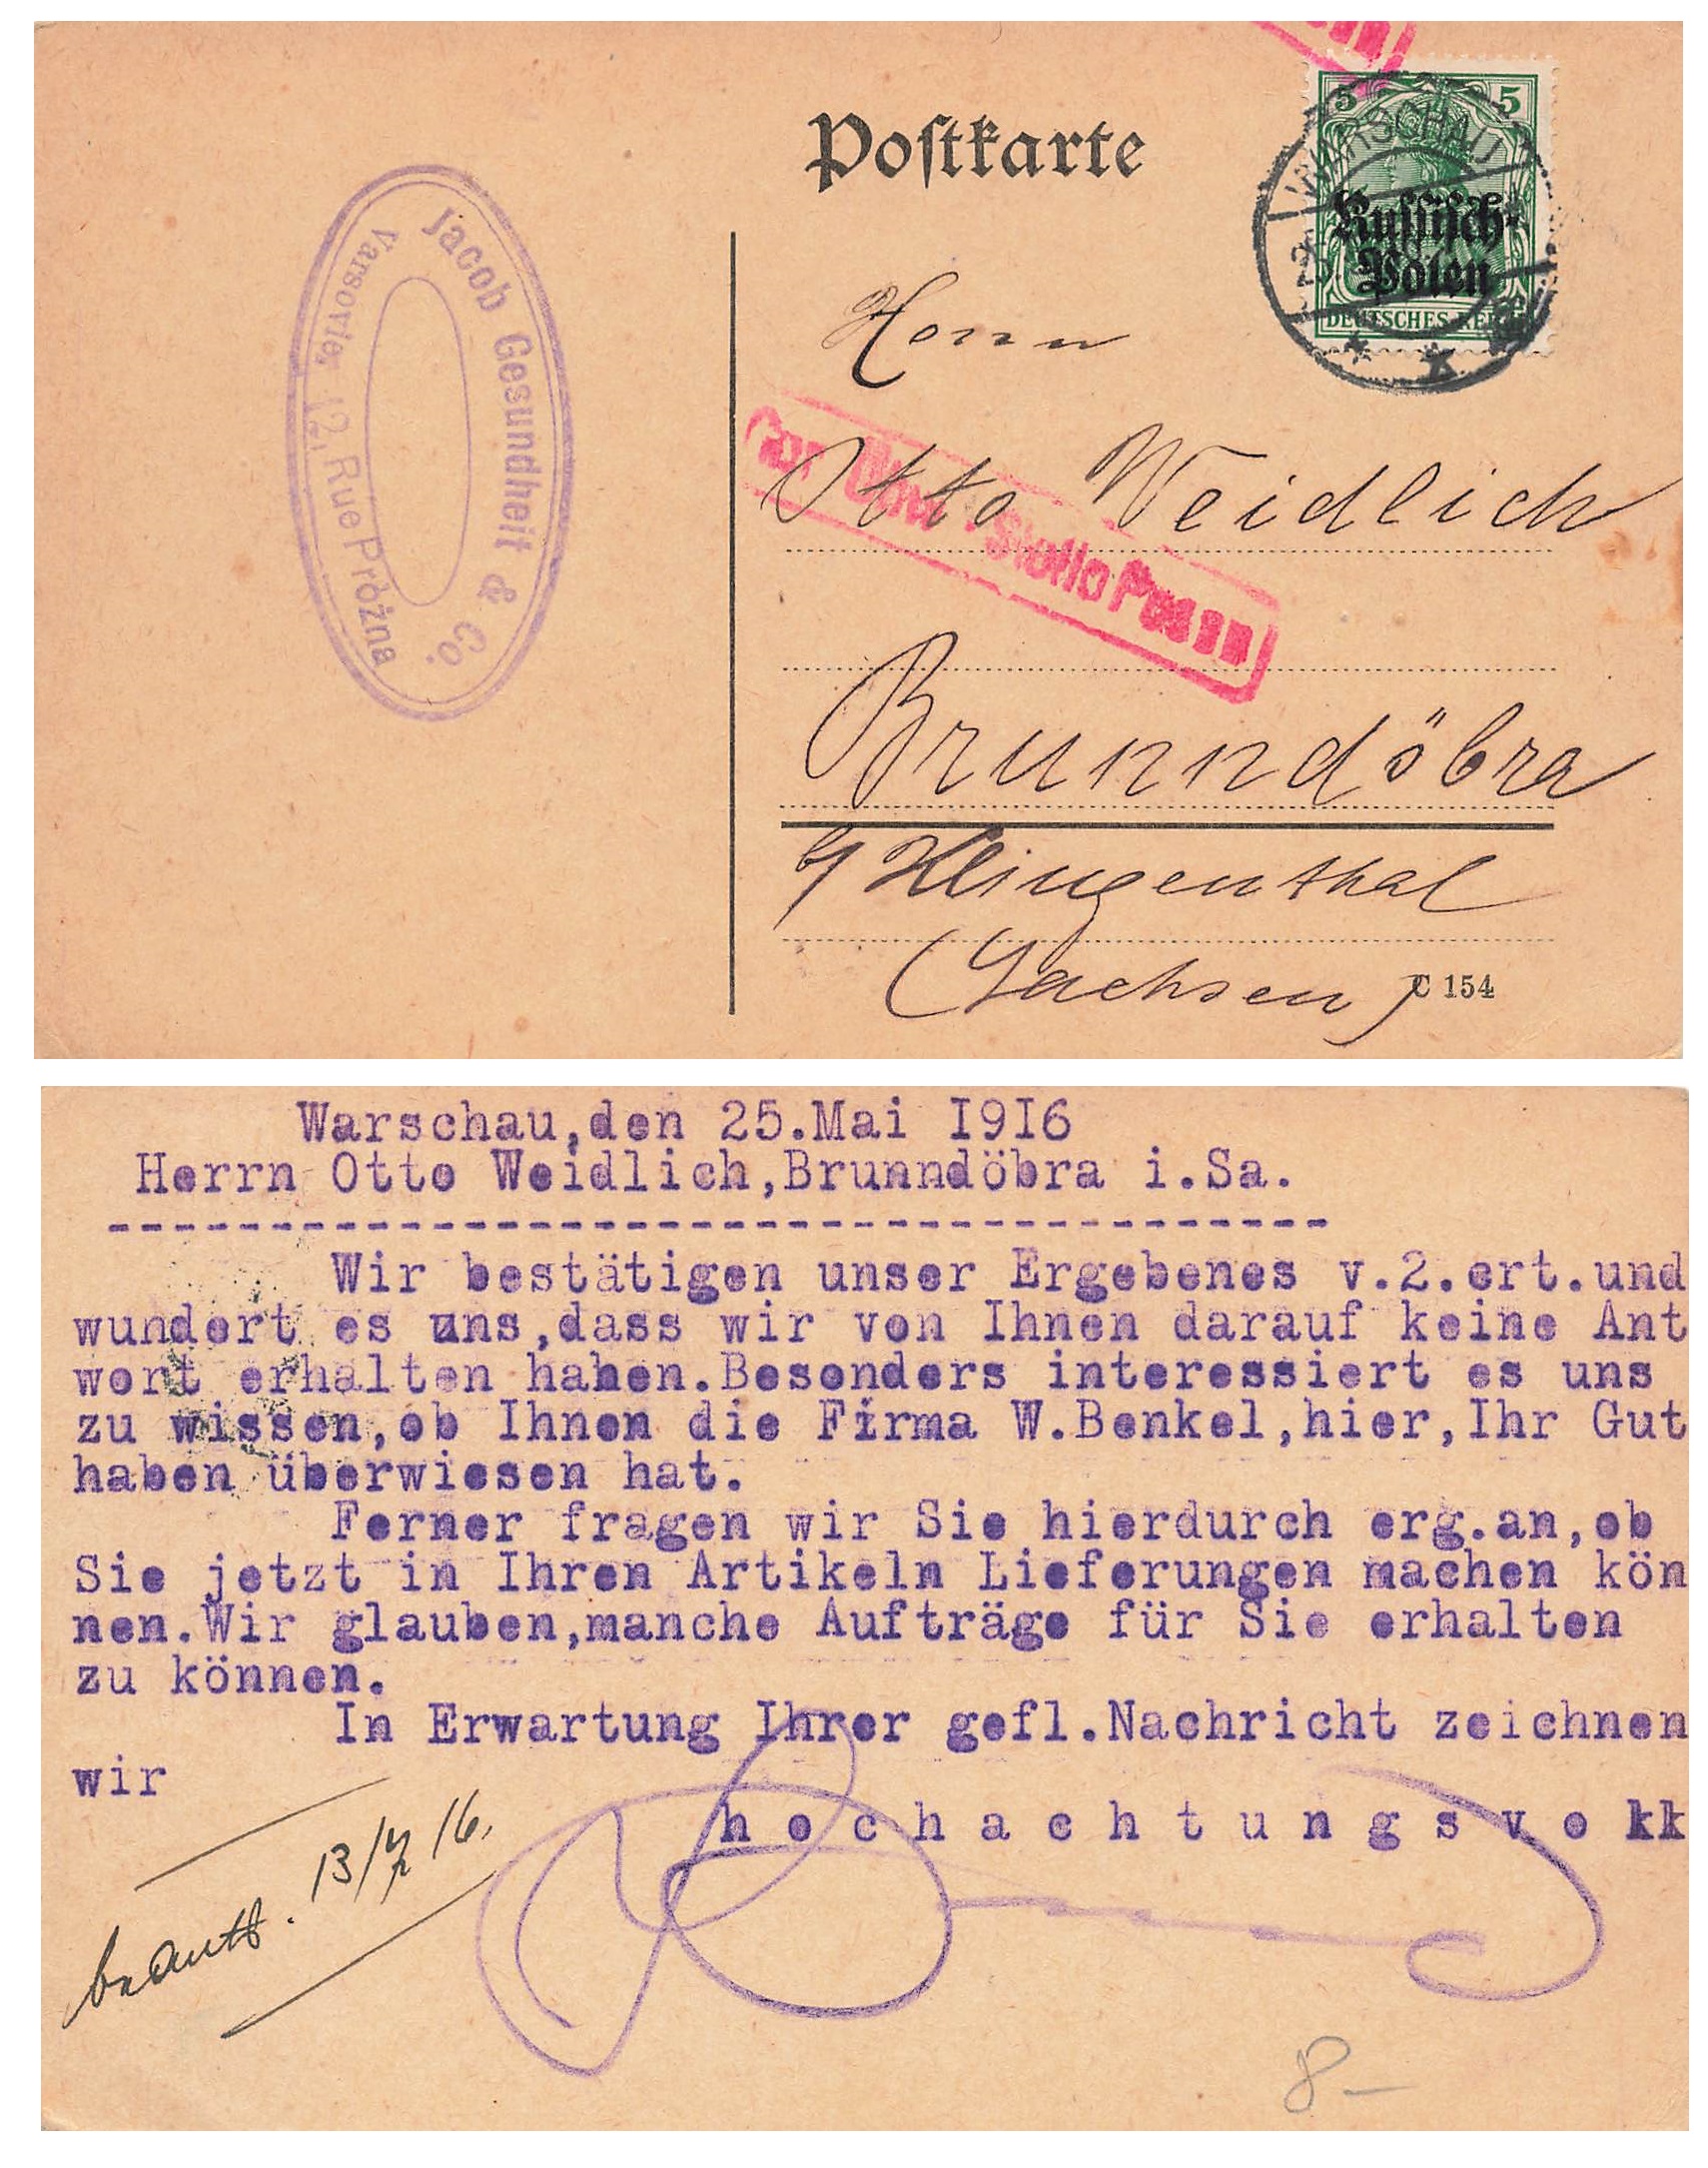 Postkarte
5 5
WARSCHAU
Russisch-
Polen
DEUTSCHES REICH
Jacob Gesundheit & Co.
Varsovie, 12, Rue Próżna
Herrn
Otto Weidlich
Posen
Brunndöbra
b/ Klingenthal
(Sachsen)
C 154
Warschau,den 25.Mai I9I6
Herrn Otto Weidlich,Brunndöbra i.Sa.
Wir bestätigen unser Ergebenes v.2.crt.und
wundert es uns,dass wir von Ihnen darauf keine Ant
wort erhalten haben.Besonders interessiert es uns
zu wissen,ob Ihnen die Firma W.Benkel,hier,Ihr Gut
haben überwiesen hat.
Ferner fragen wir Sie hierdurch erg.an,ob
Sie jetzt in Ihren Artikeln Lieferungen machen kön
nen.Wir glauben,manche Aufträge für Sie erhalten
zu können.
In Erwartung Ihrer gefl.Nachricht zeichnen
wir
h o c h a c h t u n g s v o kk
beantw. 13/7 16.
8–